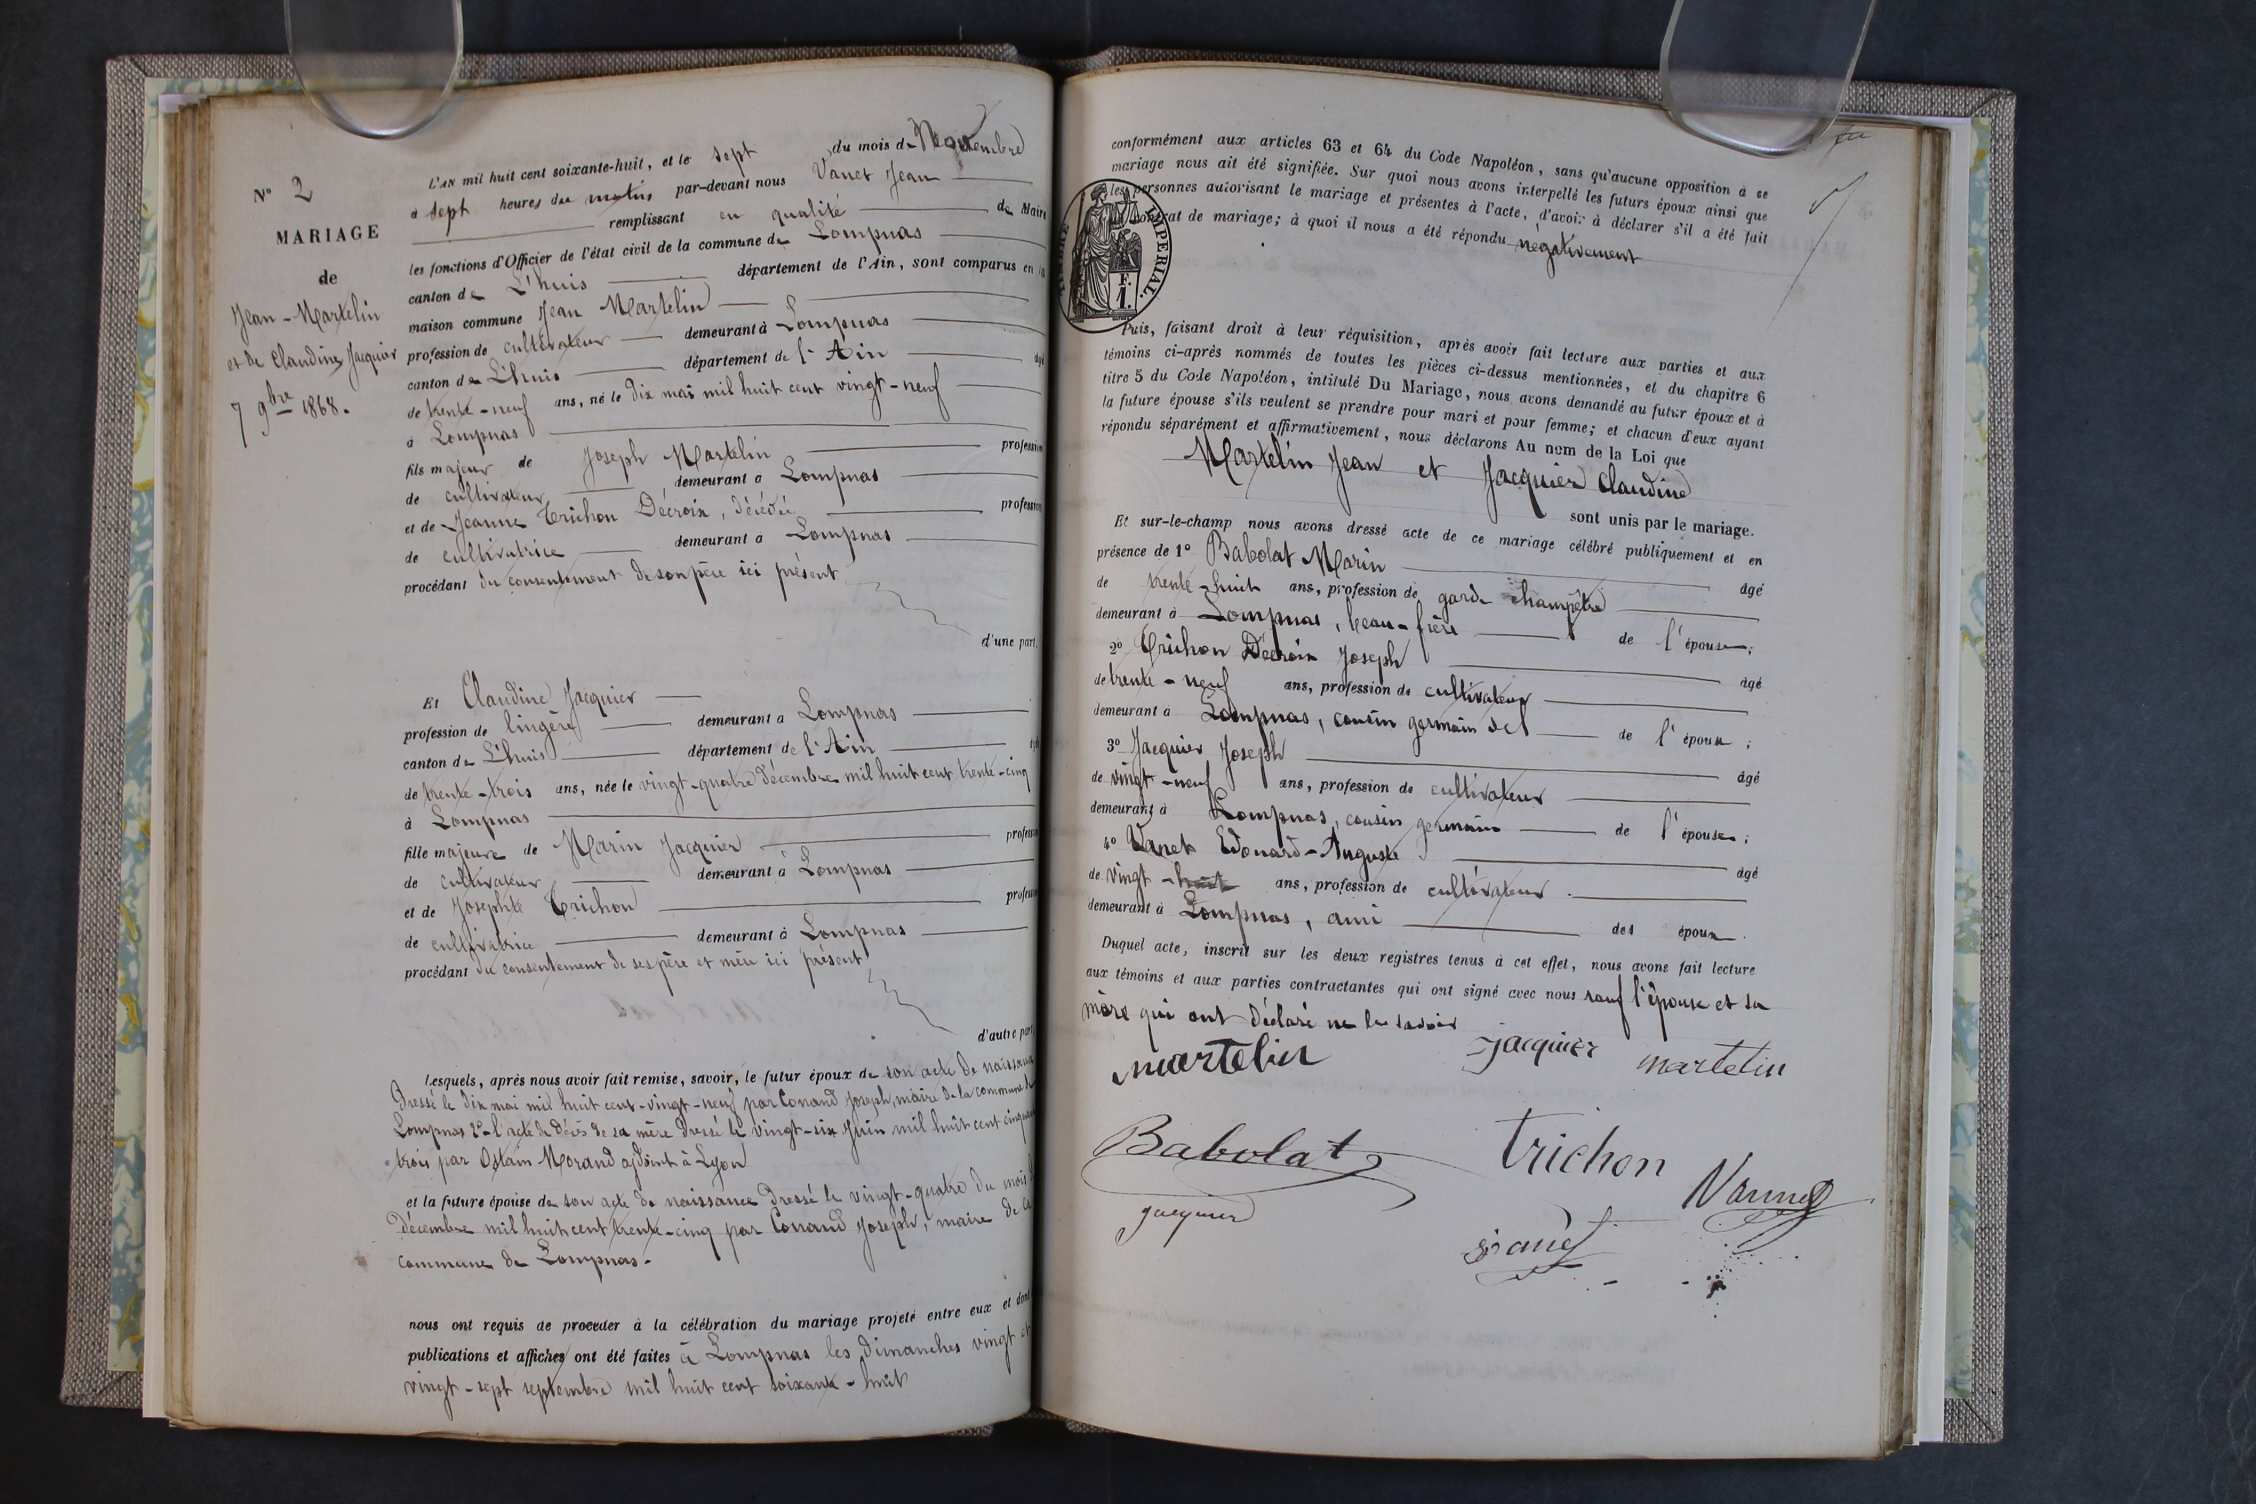 N° 2
MARIAGE
de
Jean Martelin
et de Claudine Jacquier
7 9bre 1868.
L'AN mil huit cent soixante-huit, et le sept du mois de Novembre
à sept heures du matin par-devant nous Vanet Jean
remplissant en qualité de Maire
les fonctions d'Officier de l'état civil de la commune de Lompnas
canton de L'huis département de l'Ain, sont comparus en la
maison commune Jean Martelin
profession de cultivateur demeurant à Lompnas
canton de L'huis département de l'Ain âgé
de trente-neuf ans, né le dix mai mil huit cent vingt-neuf
à Lompnas
fils majeur de Joseph Martelin profession
de cultivateur demeurant à Lompnas
et de Jeanne Trichon Décroix, décédée profession
de cultivatrice demeurant à Lompnas
procédant du consentement de son père ici présent
d'une part.
Et Claudine Jacquier
profession de lingère demeurant à Lompnas
canton de L'huis département de l'Ain âgée
de trente-trois ans, née le vingt-quatre décembre mil huit cent trente-cinq
à Lompnas
fille majeure de Marin Jacquier profession
de cultivateur demeurant à Lompnas
et de Josephte Trichon profession
de cultivatrice demeurant à Lompnas
procédant du consentement de ses père et mère ici présent
d'autre part.
Lesquels, après nous avoir fait remise, savoir, le futur époux de son acte de naissance
Dressé le dix mai mil huit cent-vingt-neuf par Conand Joseph, maire de la commune de
Lompnas 2°- l'acte de décès de sa mère dressé le vingt-six Juin mil huit cent cinquante
trois par Morand adjoint à Lyon
et la future épouse de son acte de naissance dressé le vingt-quatre du mois de
Décembre mil huit cent trente-cinq par Conand Joseph, maire de la
commune de Lompnas.
nous ont requis de procéder à la célébration du mariage projeté entre eux et dont
publications et affiches ont été faites à Lompnas les dimanches vingt et
vingt-sept septembre mil huit cent soixante-huit
conformément aux articles 63 et 64 du Code Napoléon, sans qu'aucune opposition à ce
mariage nous ait été signifiée. Sur quoi nous avons interpellé les futurs époux ainsi que
les personnes autorisant le mariage et présentes à l'acte, d'avoir à déclarer s'il a été fait
contrat de mariage; à quoi il nous a été répondu négativement
TIMBRE IMPERIAL.
F.
1.
Puis, faisant droit à leur réquisition, après avoir fait lecture aux parties et aux
témoins ci-après nommés de toutes les pièces ci-dessus mentionnées, et du chapitre 6
titre 5 du Code Napoléon, intitulé Du Mariage, nous avons demandé au futur époux et à
la future épouse s'ils veulent se prendre pour mari et pour femme; et chacun d'eux ayant
répondu séparément et affirmativement, nous déclarons Au nom de la Loi que
Martelin Jean et Jacquier Claudine
sont unis par le mariage.
Et sur-le-champ nous avons dressé acte de ce mariage célébré publiquement et en
présence de 1° Babolat Marin âgé
de trente-huit ans, profession de garde champêtre
demeurant à Lompnas, beau-frère de l'épouse;
2° Trichon Décroix Joseph âgé
de trente-neuf ans, profession de cultivateur
demeurant à Lompnas, cousin germain de l'époux;
3° Jacquier Joseph âgé
de vingt-neuf ans, profession de cultivateur
demeurant à Lompnas, cousin germain de l'épouse;
4° Vanet Edouard-Auguste âgé
de vingt-huit ans, profession de cultivateur
demeurant à Lompnas, ami des époux.
Duquel acte, inscrit sur les deux registres tenus à cet effet, nous avons fait lecture
aux témoins et aux parties contractantes qui ont signé avec nous sauf l'épouse et sa
mère qui ont déclaré ne le savoir
martelin jacquier martelin
Babolat trichon Vannet
jacquier